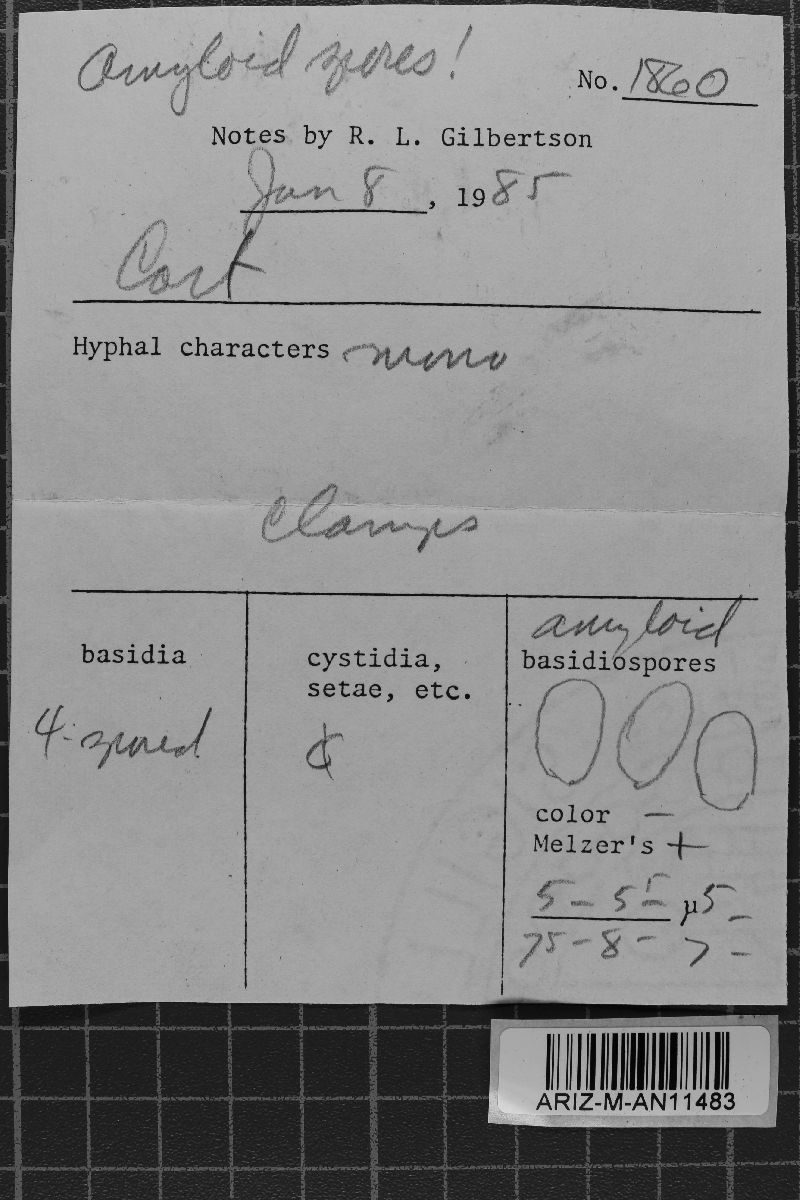 Amyloid spores!
No. 1860
Notes by R. L. Gilbertson
Jan 8, 1985
Cort
Hyphal characters mono
Clamps
amyloid
basidia
cystidia,
setae, etc.
basidiospores
4-spored
color –
Melzer's +
5 – 5 5 – µ 5 –
75 – 8 – 7 –
ARIZ-M-AN11483